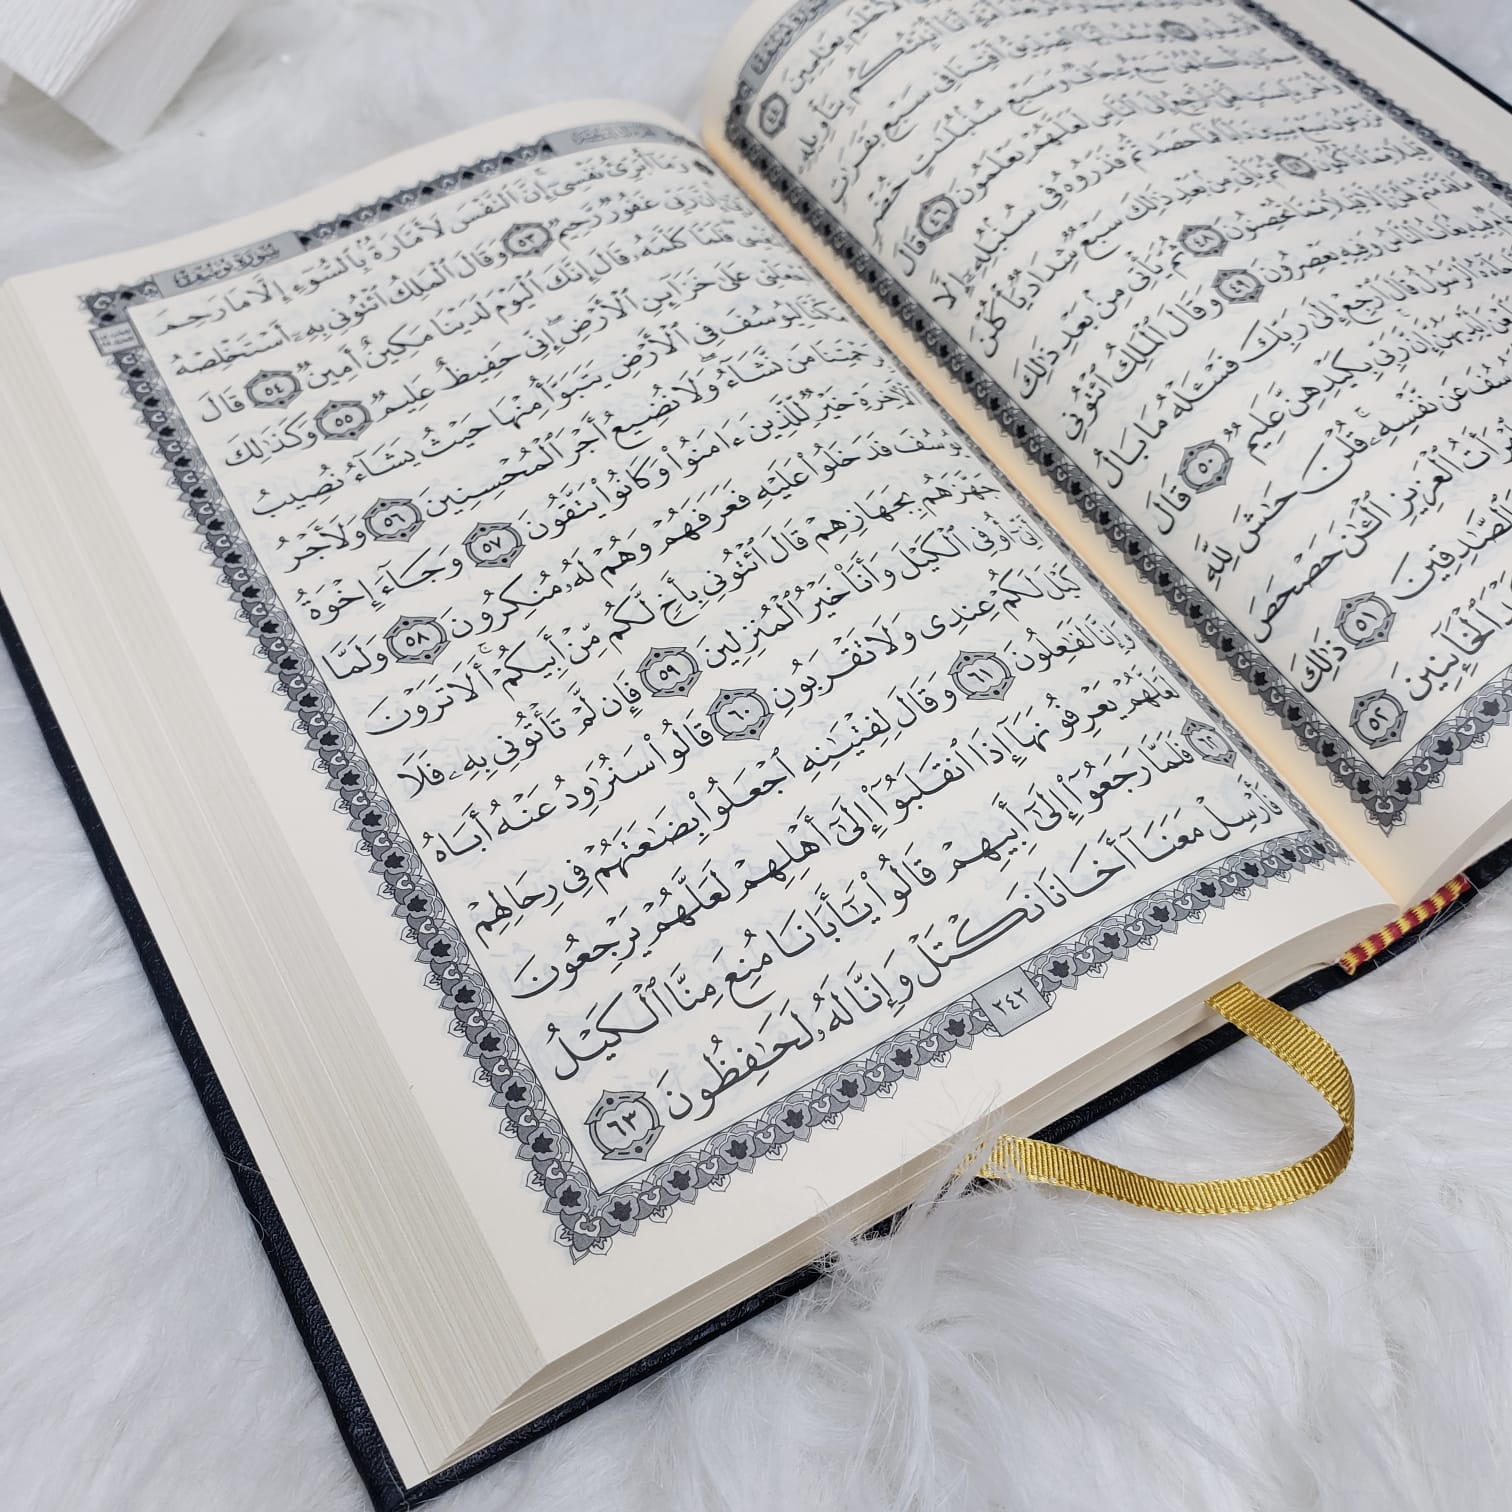 ٱلْأَحْلَـٰمِ بِعَـٰلِمِينَ
٤٤
أَنَا۠ أُنَبِّئُكُم بِتَأْوِيلِهِۦ
ٱلصِّدِّيقُ أَفْتِنَا فِى سَبْعِ بَقَرَٰتٍ
سَبْعٌ عِجَافٌ وَسَبْعِ سُنۢبُلَـٰتٍ خُضْرٍ
أَرْجِعُ إِلَى ٱلنَّاسِ لَعَلَّهُمْ يَعْلَمُونَ ٤٦ قَالَ
فَمَا حَصَدتُّمْ فَذَرُوهُ فِى سُنۢبُلِهِۦٓ إِلَّا
قَلِيلًا مِّمَّا تَأْكُلُونَ ٤٧ ثُمَّ يَأْتِى مِنۢ بَعْدِ ذَٰلِكَ سَبْعٌ شِدَادٌ يَأْكُلْنَ
مَا قَدَّمْتُمْ لَهُنَّ إِلَّا قَلِيلًا مِّمَّا تُحْصِنُونَ ٤٨ ثُمَّ يَأْتِى مِنۢ بَعْدِ ذَٰلِكَ
فِيهِ يُغَاثُ ٱلنَّاسُ وَفِيهِ يَعْصِرُونَ ٤٩ وَقَالَ ٱلْمَلِكُ ٱئْتُونِى
ٱلرَّسُولُ قَالَ ٱرْجِعْ إِلَىٰ رَبِّكَ فَسْـَٔلْهُ مَا بَالُ
أَيْدِيَهُنَّ إِنَّ رَبِّى بِكَيْدِهِنَّ عَلِيمٌ ٥٠ قَالَ
عَن نَّفْسِهِۦ ۚ قُلْنَ حَـٰشَ لِلَّهِ
ٱمْرَأَتُ ٱلْعَزِيزِ ٱلْـَٔـٰنَ حَصْحَصَ
ٱلصَّـٰدِقِينَ ٥١ ذَٰلِكَ
ٱلْخَآئِنِينَ ٥٢
سُورَةُ يُوسُفَ
وَمَآ أُبَرِّئُ نَفْسِىٓ ۚ إِنَّ ٱلنَّفْسَ لَأَمَّارَةٌۢ بِٱلسُّوٓءِ إِلَّا مَا رَحِمَ
إِنَّ رَبِّى غَفُورٌ رَّحِيمٌ ٥٣ وَقَالَ ٱلْمَلِكُ ٱئْتُونِى بِهِۦٓ أَسْتَخْلِصْهُ
فَلَمَّا كَلَّمَهُۥ قَالَ إِنَّكَ ٱلْيَوْمَ لَدَيْنَا مَكِينٌ أَمِينٌ ٥٤ قَالَ
عَلَىٰ خَزَآئِنِ ٱلْأَرْضِ ۖ إِنِّى حَفِيظٌ عَلِيمٌ ٥٥ وَكَذَٰلِكَ
مَكَّنَّا لِيُوسُفَ فِى ٱلْأَرْضِ يَتَبَوَّأُ مِنْهَا حَيْثُ يَشَآءُ ۚ نُصِيبُ
بِرَحْمَتِنَا مَن نَّشَآءُ ۖ وَلَا نُضِيعُ أَجْرَ ٱلْمُحْسِنِينَ ٥٦ وَلَأَجْرُ
ٱلْـَٔاخِرَةِ خَيْرٌ لِّلَّذِينَ ءَامَنُوا۟ وَكَانُوا۟ يَتَّقُونَ ٥٧ وَجَآءَ إِخْوَةُ
يُوسُفَ فَدَخَلُوا۟ عَلَيْهِ فَعَرَفَهُمْ وَهُمْ لَهُۥ مُنكِرُونَ ٥٨ وَلَمَّا
جَهَّزَهُم بِجَهَازِهِمْ قَالَ ٱئْتُونِى بِأَخٍ لَّكُم مِّنْ أَبِيكُمْ ۚ أَلَا تَرَوْنَ
أَنِّىٓ أُوفِى ٱلْكَيْلَ وَأَنَا۠ خَيْرُ ٱلْمُنزِلِينَ ٥٩ فَإِن لَّمْ تَأْتُونِى بِهِۦ فَلَا
كَيْلَ لَكُمْ عِندِى وَلَا تَقْرَبُونِ ٦٠ قَالُوا۟ سَنُرَٰوِدُ عَنْهُ أَبَاهُ
وَإِنَّا لَفَـٰعِلُونَ ٦١ وَقَالَ لِفِتْيَـٰنِهِ ٱجْعَلُوا۟ بِضَـٰعَتَهُمْ فِى رِحَالِهِمْ
لَعَلَّهُمْ يَعْرِفُونَهَآ إِذَا ٱنقَلَبُوٓا۟ إِلَىٰٓ أَهْلِهِمْ لَعَلَّهُمْ يَرْجِعُونَ
٦٢ فَلَمَّا رَجَعُوٓا۟ إِلَىٰٓ أَبِيهِمْ قَالُوا۟ يَـٰٓأَبَانَا مُنِعَ مِنَّا ٱلْكَيْلُ
فَأَرْسِلْ مَعَنَآ أَخَانَا نَكْتَلْ وَإِنَّا لَهُۥ لَحَـٰفِظُونَ ٦٣
٢٤٢